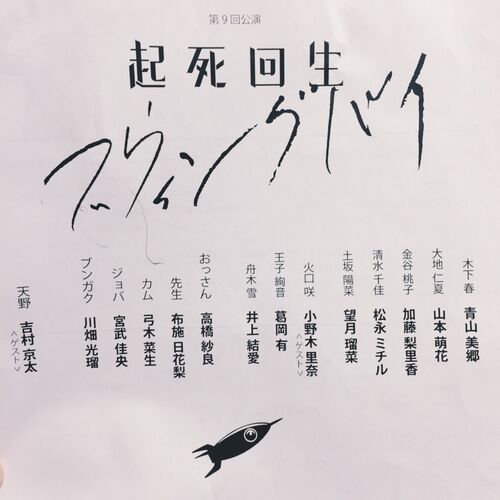 第9回公演
起死回生
スウィングバイ
木下 春 青山 美郷
大地 仁夏 山本 萌花
金谷 桃子 加藤 梨里香
清水 千佳 松永 ミチル
土坂 陽菜 望月 瑠菜
火口 咲 小野木 里奈 <ゲスト>
王子 絢音 葛岡 有
舟木 雪 井上 結愛
おっさん 高橋 紗良
先生 布施 日花梨
カム 弓木 菜生
ジョバ 宮武 佳央
ブンガク 川畑 光瑠
天野 吉村 京太 <ゲスト>